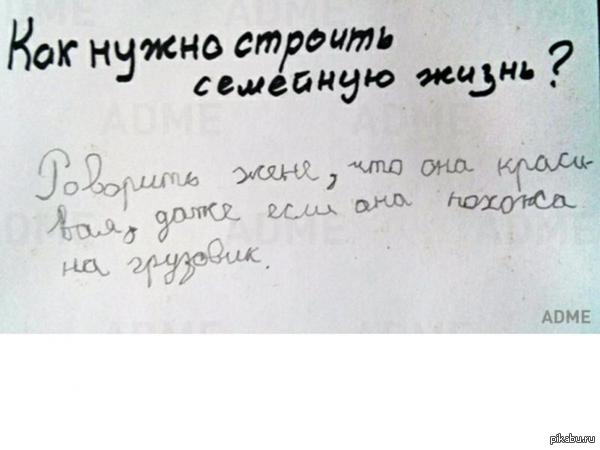 Как нужно строить
семейную жизнь?
Говорить жене, что она краси-
вая, даже если она похожа
на грузовик.
ADME
pikabu.ru